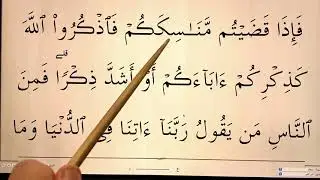 فَإِذَا قَضَيْتُم مَّنَـٰسِكَكُمْ فَٱذْكُرُوا۟ ٱللَّهَ
كَذِكْرِكُمْ ءَابَآءَكُمْ أَوْ أَشَدَّ ذِكْرًا ۗ فَمِنَ
ٱلنَّاسِ مَن يَقُولُ رَبَّنَآ ءَاتِنَا فِى ٱلدُّنْيَا وَمَا